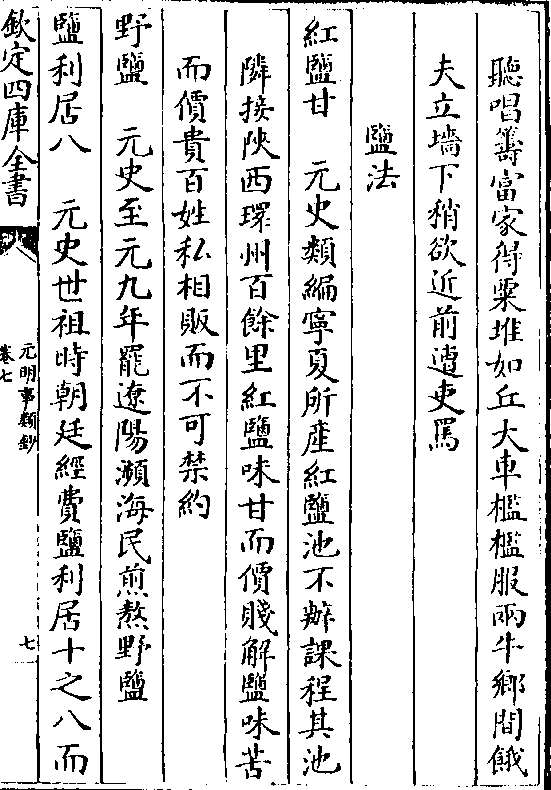 聽唱籌富家得粟堆如丘大車檻檻服兩牛鄉間餓
夫立墻下稍欲近前遭吏罵
鹽法
紅鹽甘 元史類編寧夏所產紅鹽池不辦課程其池
隣接陜西環州百餘里紅鹽味甘而價賤解鹽味苦
而價貴百姓私相販而不可禁約
野鹽 元史至元九年罷遼陽瀕海民煎熬野鹽
鹽利居八 元史世祖時朝廷經費鹽利居十之八而
欽定四庫全書
元明事類鈔
卷七
七